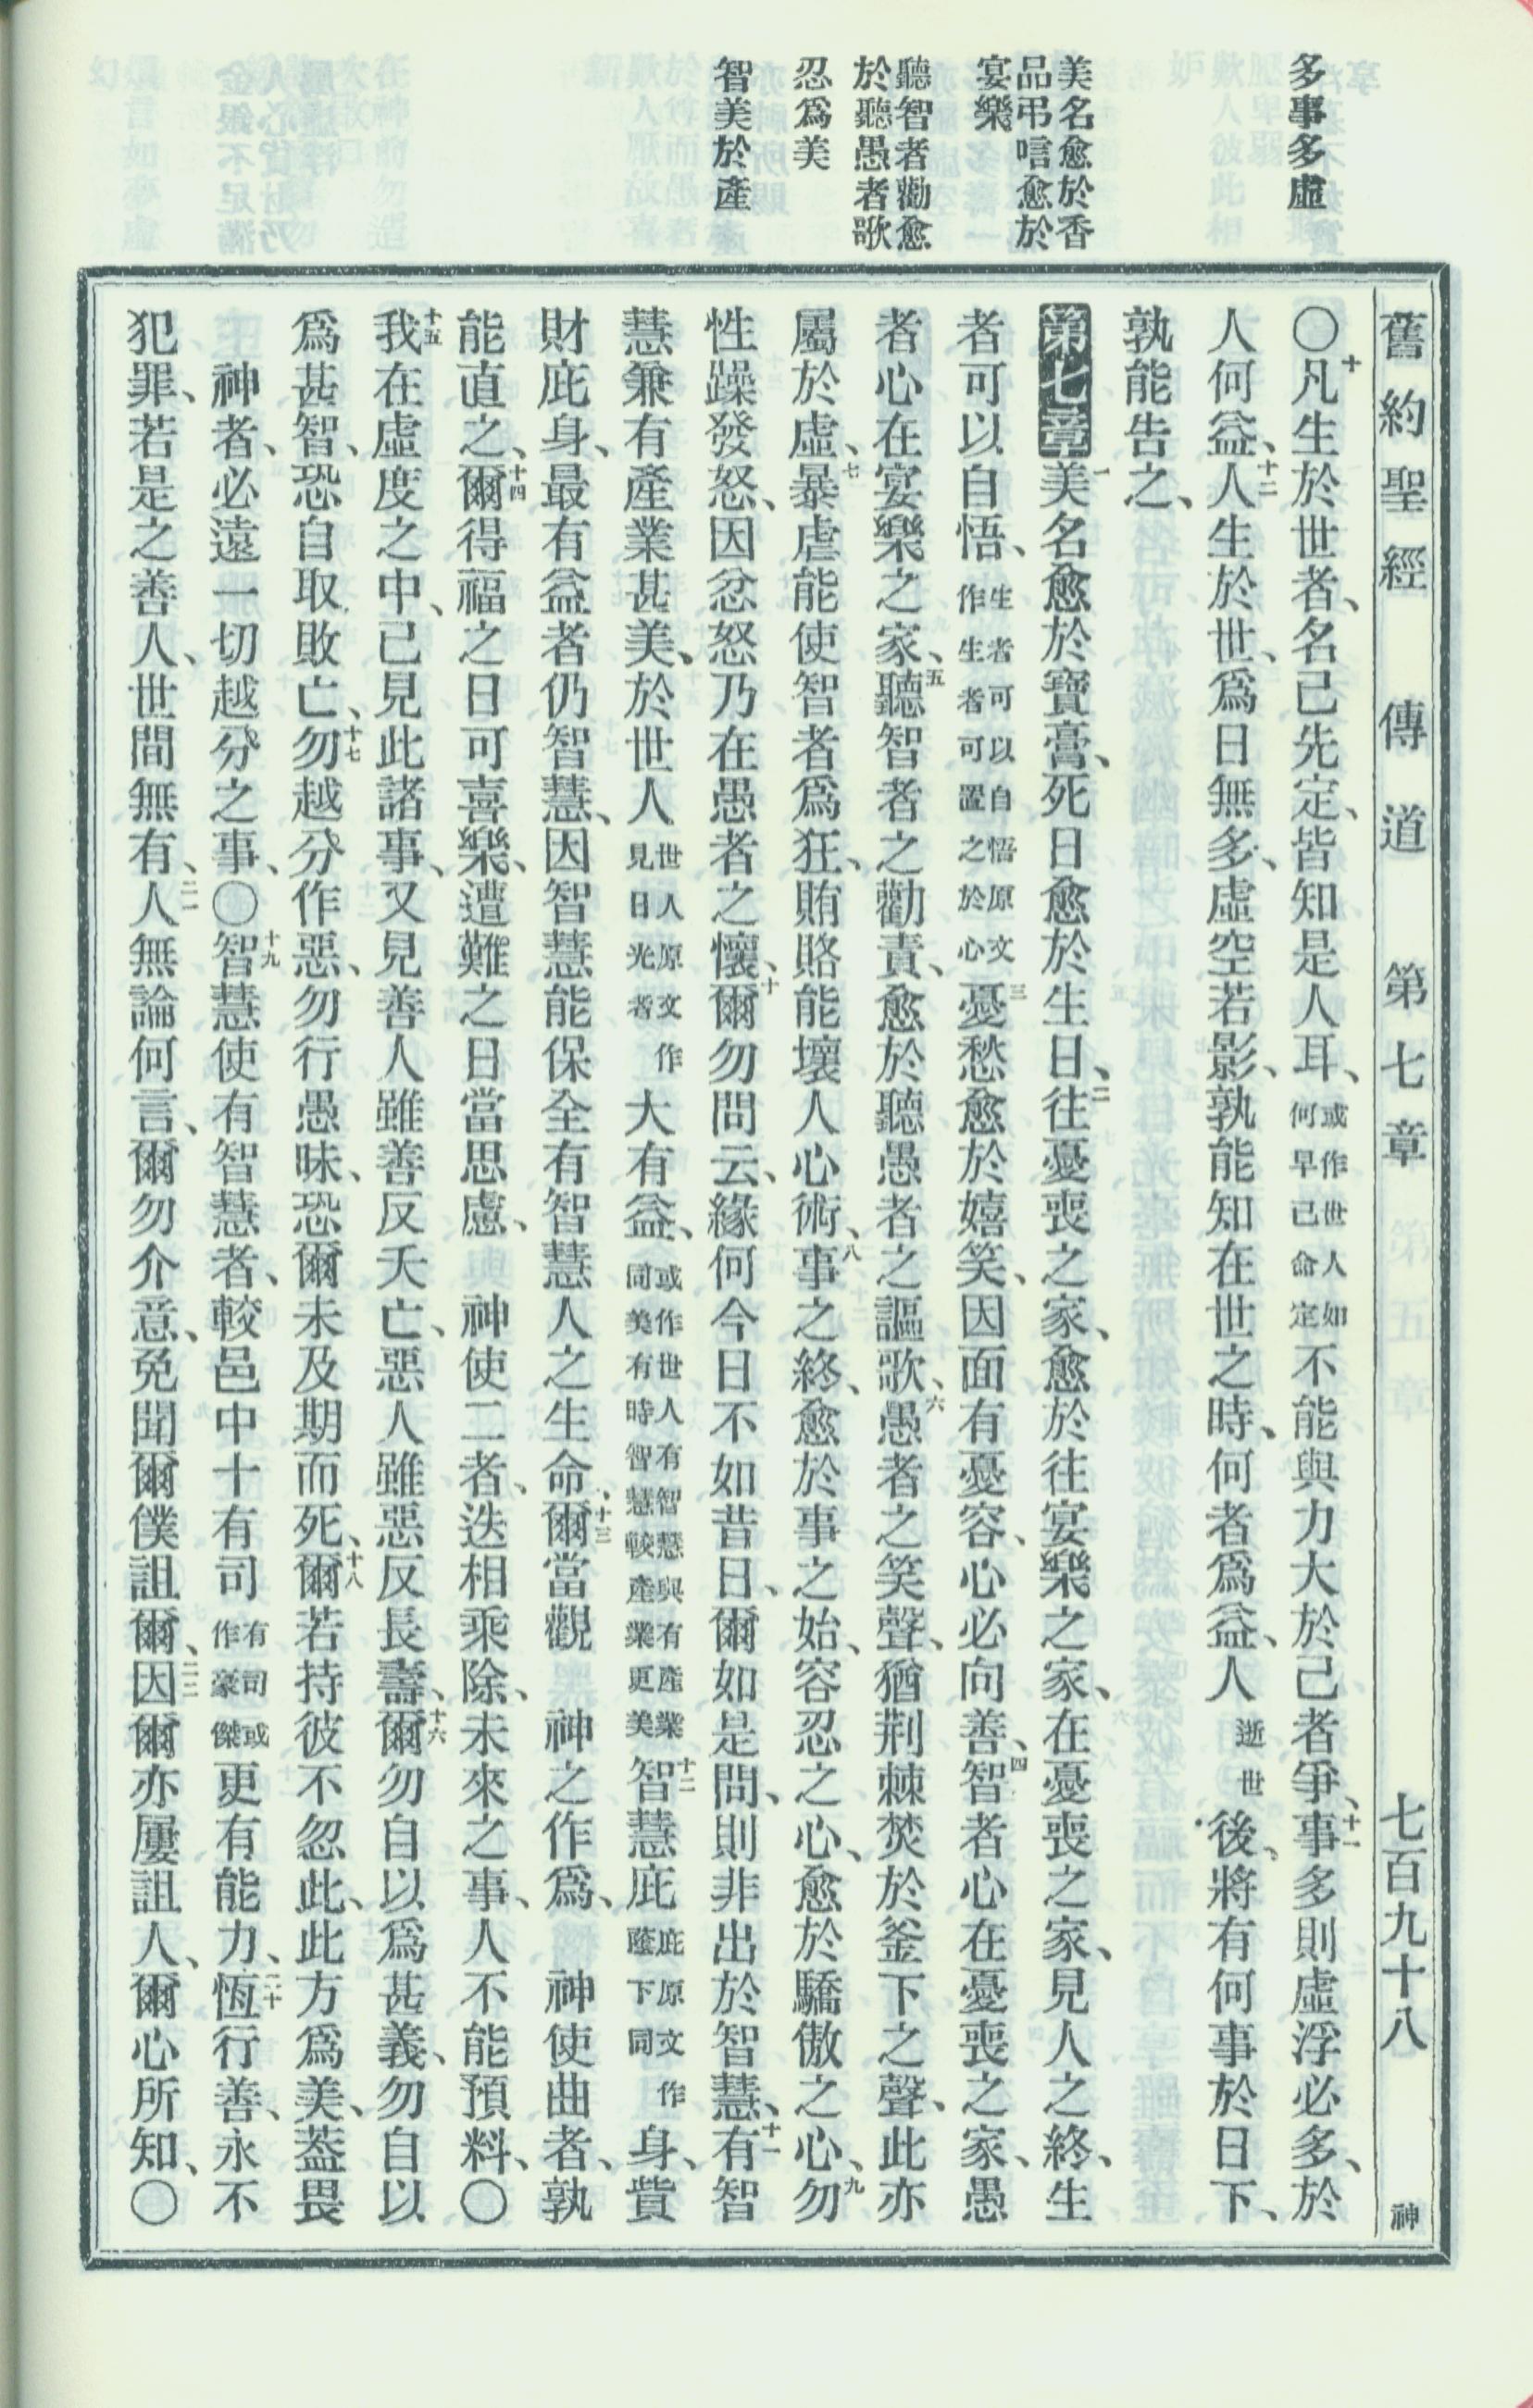 舊約聖經　傳道　第七章　七百九十八　神
多事多虛
美名愈於香
品弔唁愈於
宴樂
聽智者勸愈
於聽愚者歌
忍爲美
智美於產
〇十凡生於世者、名已先定、皆知是人耳、或作世人如何早已命定不能與力大於己者爭、十一事多則虛浮必多、於
人何益、十二人生於世、爲日無多、虛空若影、孰能知在世之時、何者爲益、人逝世後、將有何事於日下、
孰能告之、
第七章一美名愈於寶膏、死日愈於生日、二往憂喪之家、愈於往宴樂之家、在憂喪之家、見人之終、生
者可以自悟、生者可以自悟原文作生者可置之於心三憂愁愈於嬉笑、因面有憂容、心必向善、四智者心在憂喪之家、愚
者心在宴樂之家、五聽智者之勸責、愈於聽愚者之謳歌、六愚者之笑聲、猶荆棘焚於釜下之聲、此亦
屬於虛、七暴虐能使智者爲狂、賄賂能壞人心術、八事之終、愈於事之始、容忍之心、愈於驕傲之心、九勿
性躁發怒、因忿怒乃在愚者之懷、十爾勿問云、緣何今日不如昔日、爾如是問、則非出於智慧、十一有智
慧兼有產業甚美、於世人世人原文作見日光者大有益、或作世人有智慧與有產業同美有時智慧較產業更美十二智慧庇庇原文作蔭下同身、貲
財庇身、最有益者仍智慧、因智慧能保全有智慧人之生命、十三爾當觀　神之作爲、　神使曲者、孰
能直之、十四爾得福之日可喜樂、遭難之日當思慮、　神使二者、迭相乘除、未來之事、人不能預料、〇
十五我在虛度之中、己見此諸事、又見善人雖善反夭亡、惡人雖惡反長壽、十六爾勿自以爲甚義、勿自以
爲甚智、恐自取敗亡、十七勿越分作惡、勿行愚昧、恐爾未及期而死、十八爾若持彼不忽此、此方爲美、葢畏
　神者、必遠一切越分之事、〇十九智慧使有智慧者、較邑中十有司有司或作豪傑更有能力、二十恆行善、永不
犯罪、若是之善人、世間無有、二一人無論何言、爾勿介意、免聞爾僕詛爾、二二因爾亦屢詛人、爾心所知、〇